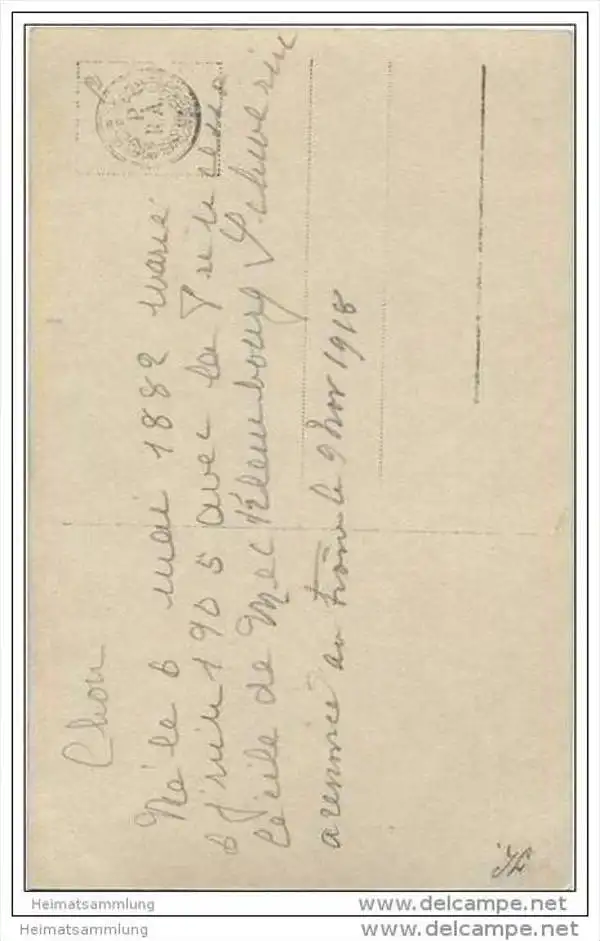 Chou
Né le 6 mai 1882 marié
6 Juin 1905 avec la Princesse
Cécile de Mecklembourg Schwerin
a renoncé au trône le 9 nov 1918
Heimatsammlung
www.delcampe.net
Heimatsammlung
www.delcampe.net